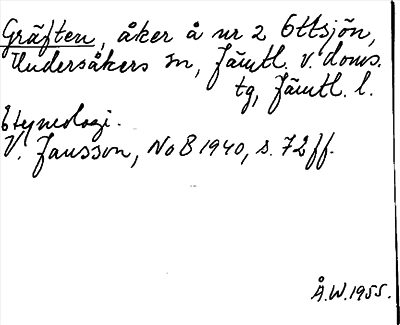 Gräften, åker å nr 2 Ottsjön,
Undersåkers sn, Jämtl. v. doms.
tg, Jämtl. l.
Etymologi.
V. Jansson, NoB 1940, s. 72 ff.
Å.W. 1955.